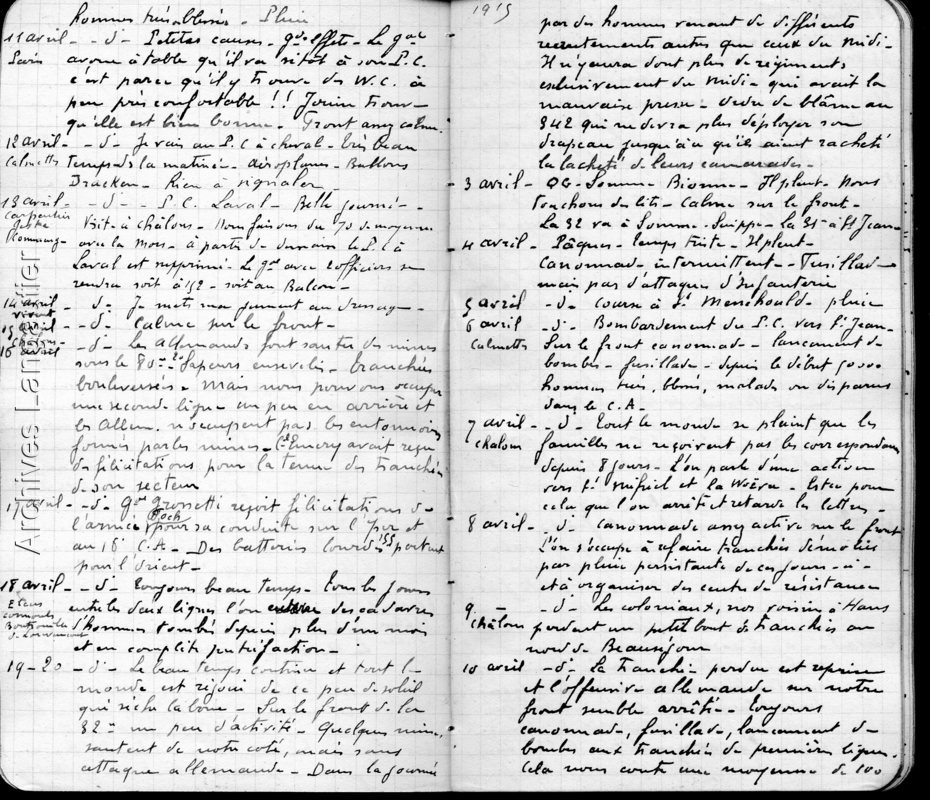 hommes
11 avril - -d°- Petites causes - gds effets - Le gal
Paris
avoue à table qu'il va sitôt à son P.C.
c'est parce qu'il y trouve des W.C. à
peu près confortable !! Jouin trouve
qu'elle est bien bonne - Front assez calme.
12 avril - -d°- Je vais au P.C à cheval - très beau
Calmettes temps de la matinée - aéroplanes - Ballons
Dracken - Rien à signaler -
13 avril - -d°- P.C. Laval - Belle journée -
Carpentier
Visite à Châlons - Nous faisons du 70 de moyenne
avec la Mors - à partir de demain le P.C à
Laval est supprimé - Le gal avec 2 officiers se
rendra soit à 192 - soit au Balcon -
14 avril - -d°- Je mets ma jument au dressage -
15 avril - -d°- Calme sur le front -
16 avril - -d°- Les Allemands font sauter des mines
sous le 80e - 20 sapeurs ensevelis - tranchées
bouleversées - mais nous pouvons occuper
une seconde ligne un peu en arrière et
les Allem. n'occupent pas les entonnoirs
formés par les mines - Cel Emery avait reçu
des félicitations pour la tenue des tranchées
de son secteur
17 avril - -d°- Gal Grossetti reçoit félicitations de
l'armée (Foch) pour sa conduite sur l'Yser et
au 16e C.A - Des batteries lourdes 155 partent
pour l'orient -
18 avril - -d°- Toujours beau temps - Tous les jours
entre les deux lignes l'on des cadavres
d'hommes tombés depuis plus d'un mois
et en complète putréfaction -
19-20 -d°- Le beau temps continue et tout le
monde est réjoui de ce peu de soleil
qui sèche la boue - Sur le front de la
32e un peu d'activité - Quelques mines
sautent de notre côté, mais sans
attaque allemande - Dans la journée
1915
par des hommes venant de différents
recrutements autres que ceux du midi -
Il n'y aura donc plus de régiments
exclusivement du Midi - qui avait la
mauvaise presse - Ordre de blâme au
342 qui ne devra plus déployer son
drapeau jusqu'à ce qu'ils aient racheté
la lâcheté de leurs camarades -
3 avril - QG - Somme Bionne - Il pleut - Nous
touchons des lits - Calme sur le front -
La 32 va à Somme-Suippe - la 31 à St Jean
4 avril - Pâques - temps triste - Il pleut -
Canonnade intermittente - Fusillade
mais pas d'attaque d'infanterie
5 avril -d°- Course à Ste Menehould - pluie
6 avril -d°- Bombardement du P.C. vers St Jean -
Calmettes Sur le front canonnade - lancement de
bombes - fusillade - depuis le début 50000
hommes tués, blessés, malades ou disparus
dans le C.A -
7 avril - -d°- Tout le monde se plaint que les
Chalons familles ne reçoivent pas les correspondances
depuis 8 jours - L'on parle d'une action
vers St Mihiel et la Woëvre - Est-ce pour
cela que l'on arrête et retarde les lettres -
8 avril - -d°- Canonnade assez active sur le front
L'on s'occupe à refaire tranchées démolies
par pluie persistante de ces jours-ci -
et à organiser des centres de résistance
9 - -d°- Les coloniaux, nos voisins à Hans
Châlons perdent un petit bout de tranchées au
nord de Beauséjour
10 avril -d°- La tranchée perdue est reprise
et l'offensive allemande sur notre
front semble arrêtée - Toujours
canonnade, fusillade, lancement de
bombes aux tranchées de première ligne.
Cela nous coûte une moyenne de 100
Archives Langlumier